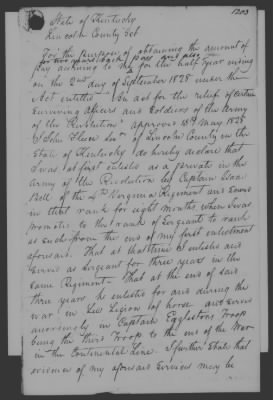 1203
State of Kentucky
Lincoln County Sct
For the purpose of obtaining the amount of
pay accruing to me for the half year ending
on the 2nd day of September 1828 under the
Act entitled "An act for the relief of Certain
Surviving Officers and Soldiers of the Army
of the Revolution" approved 15th May 1828
I John Senr of Lincoln County in the
State of Kentucky do hereby declare that
I was at first enlisted as a private in the
Army of the Revolution by Captain
Bell of the 4th Virginia Regiment and Served
in that rank for eight months when I was
promoted to the rank of Sergeant to rank
as such from the end of my first enlistment
aforesaid. That at that time I enlisted and
Served as Sergeant for three years in the
Same Regiment. That at the end of said
three years he enlisted for and during the
war in Lees Legion of horse and Served
in Captain Egglestons Troop
being the third Troop to the end of the War
in the Continental Line. I further State that
evidence of my aforesaid Services may be